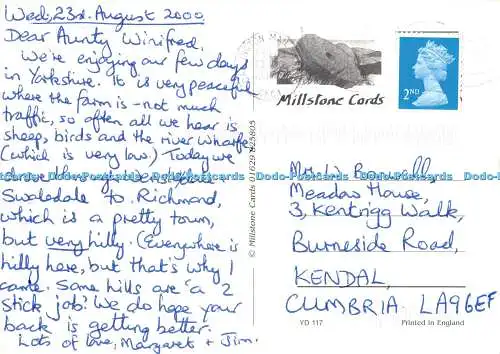 Wed, 23rd. August 2000
Dear Aunty Winifred,
We're enjoying our few days
in Yorkshire. It is very peaceful
where the farm is - not much
traffic, so often all we hear is
sheep, birds and the river Wharfe
(which is very low.) Today we
Swaledale to Richmond,
which is a pretty town,
but very hilly. (Everywhere is
hilly here, but that's why I
came. Some hills are 'a 2
stick job'! We do hope your
back is getting better.
Lots of love, Margaret + Jim.
© Millstone Cards 01229 825805
Millstone Cards
2ND
Meadow House,
3, Kentrigg Walk,
Burneside Road,
KENDAL,
CUMBRIA. LA9 6EF
YD 117
Printed in England
Dodo-Postcards